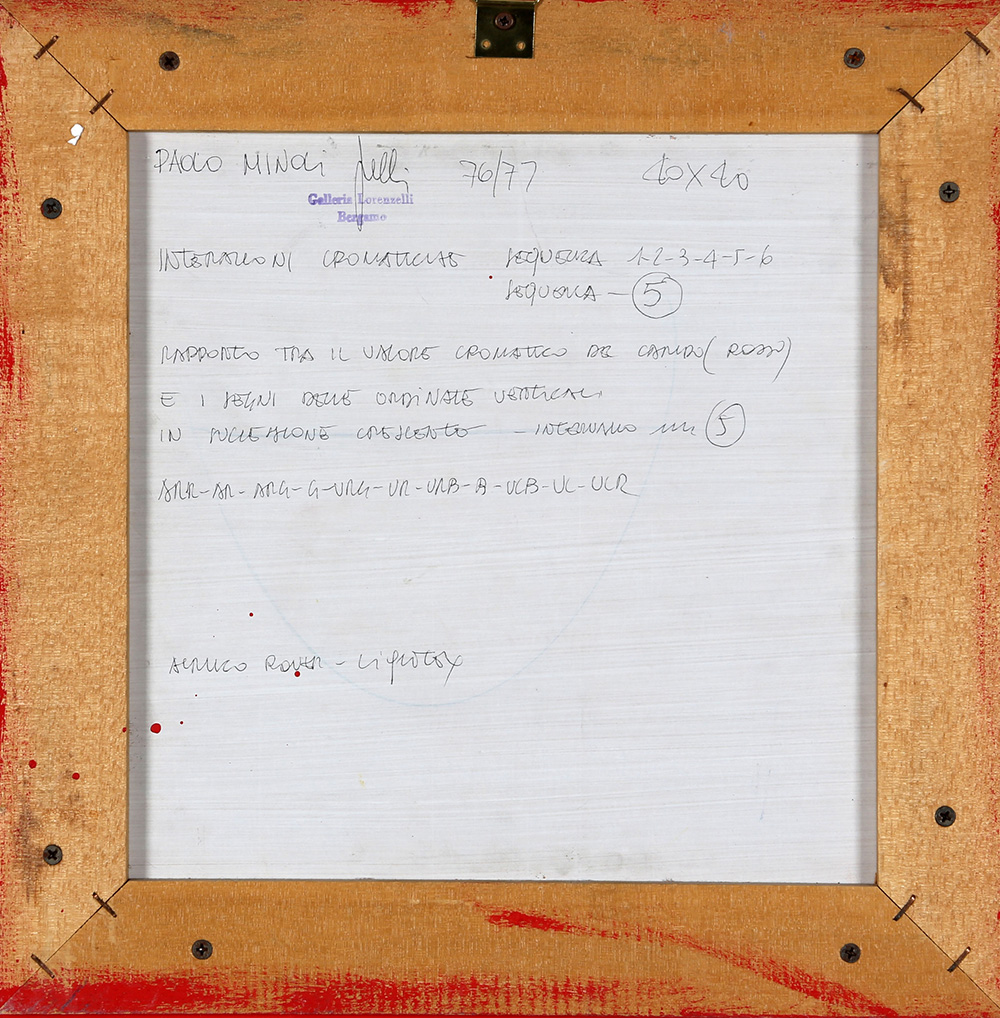 PAOLO MINOLI 76/77 40X40
Galleria Lorenzelli
Bergamo
INTERAZIONI CROMATICHE SEQUENZA 1-2-3-4-5-6
SEQUENZA - 5
RAPPORTO TRA IL VALORE CROMATICO DEL CAMPO (ROSSO)
E I SEGNI DELLE ORDINATE VERTICALI
IN SUCCESSIONE CRESCENTE - INTERVALLO mm 5
ARR-AR-ARG-G-VRG-VR-VRB-B-VCB-VC-VCR
ACRILICO - LiquiTEX